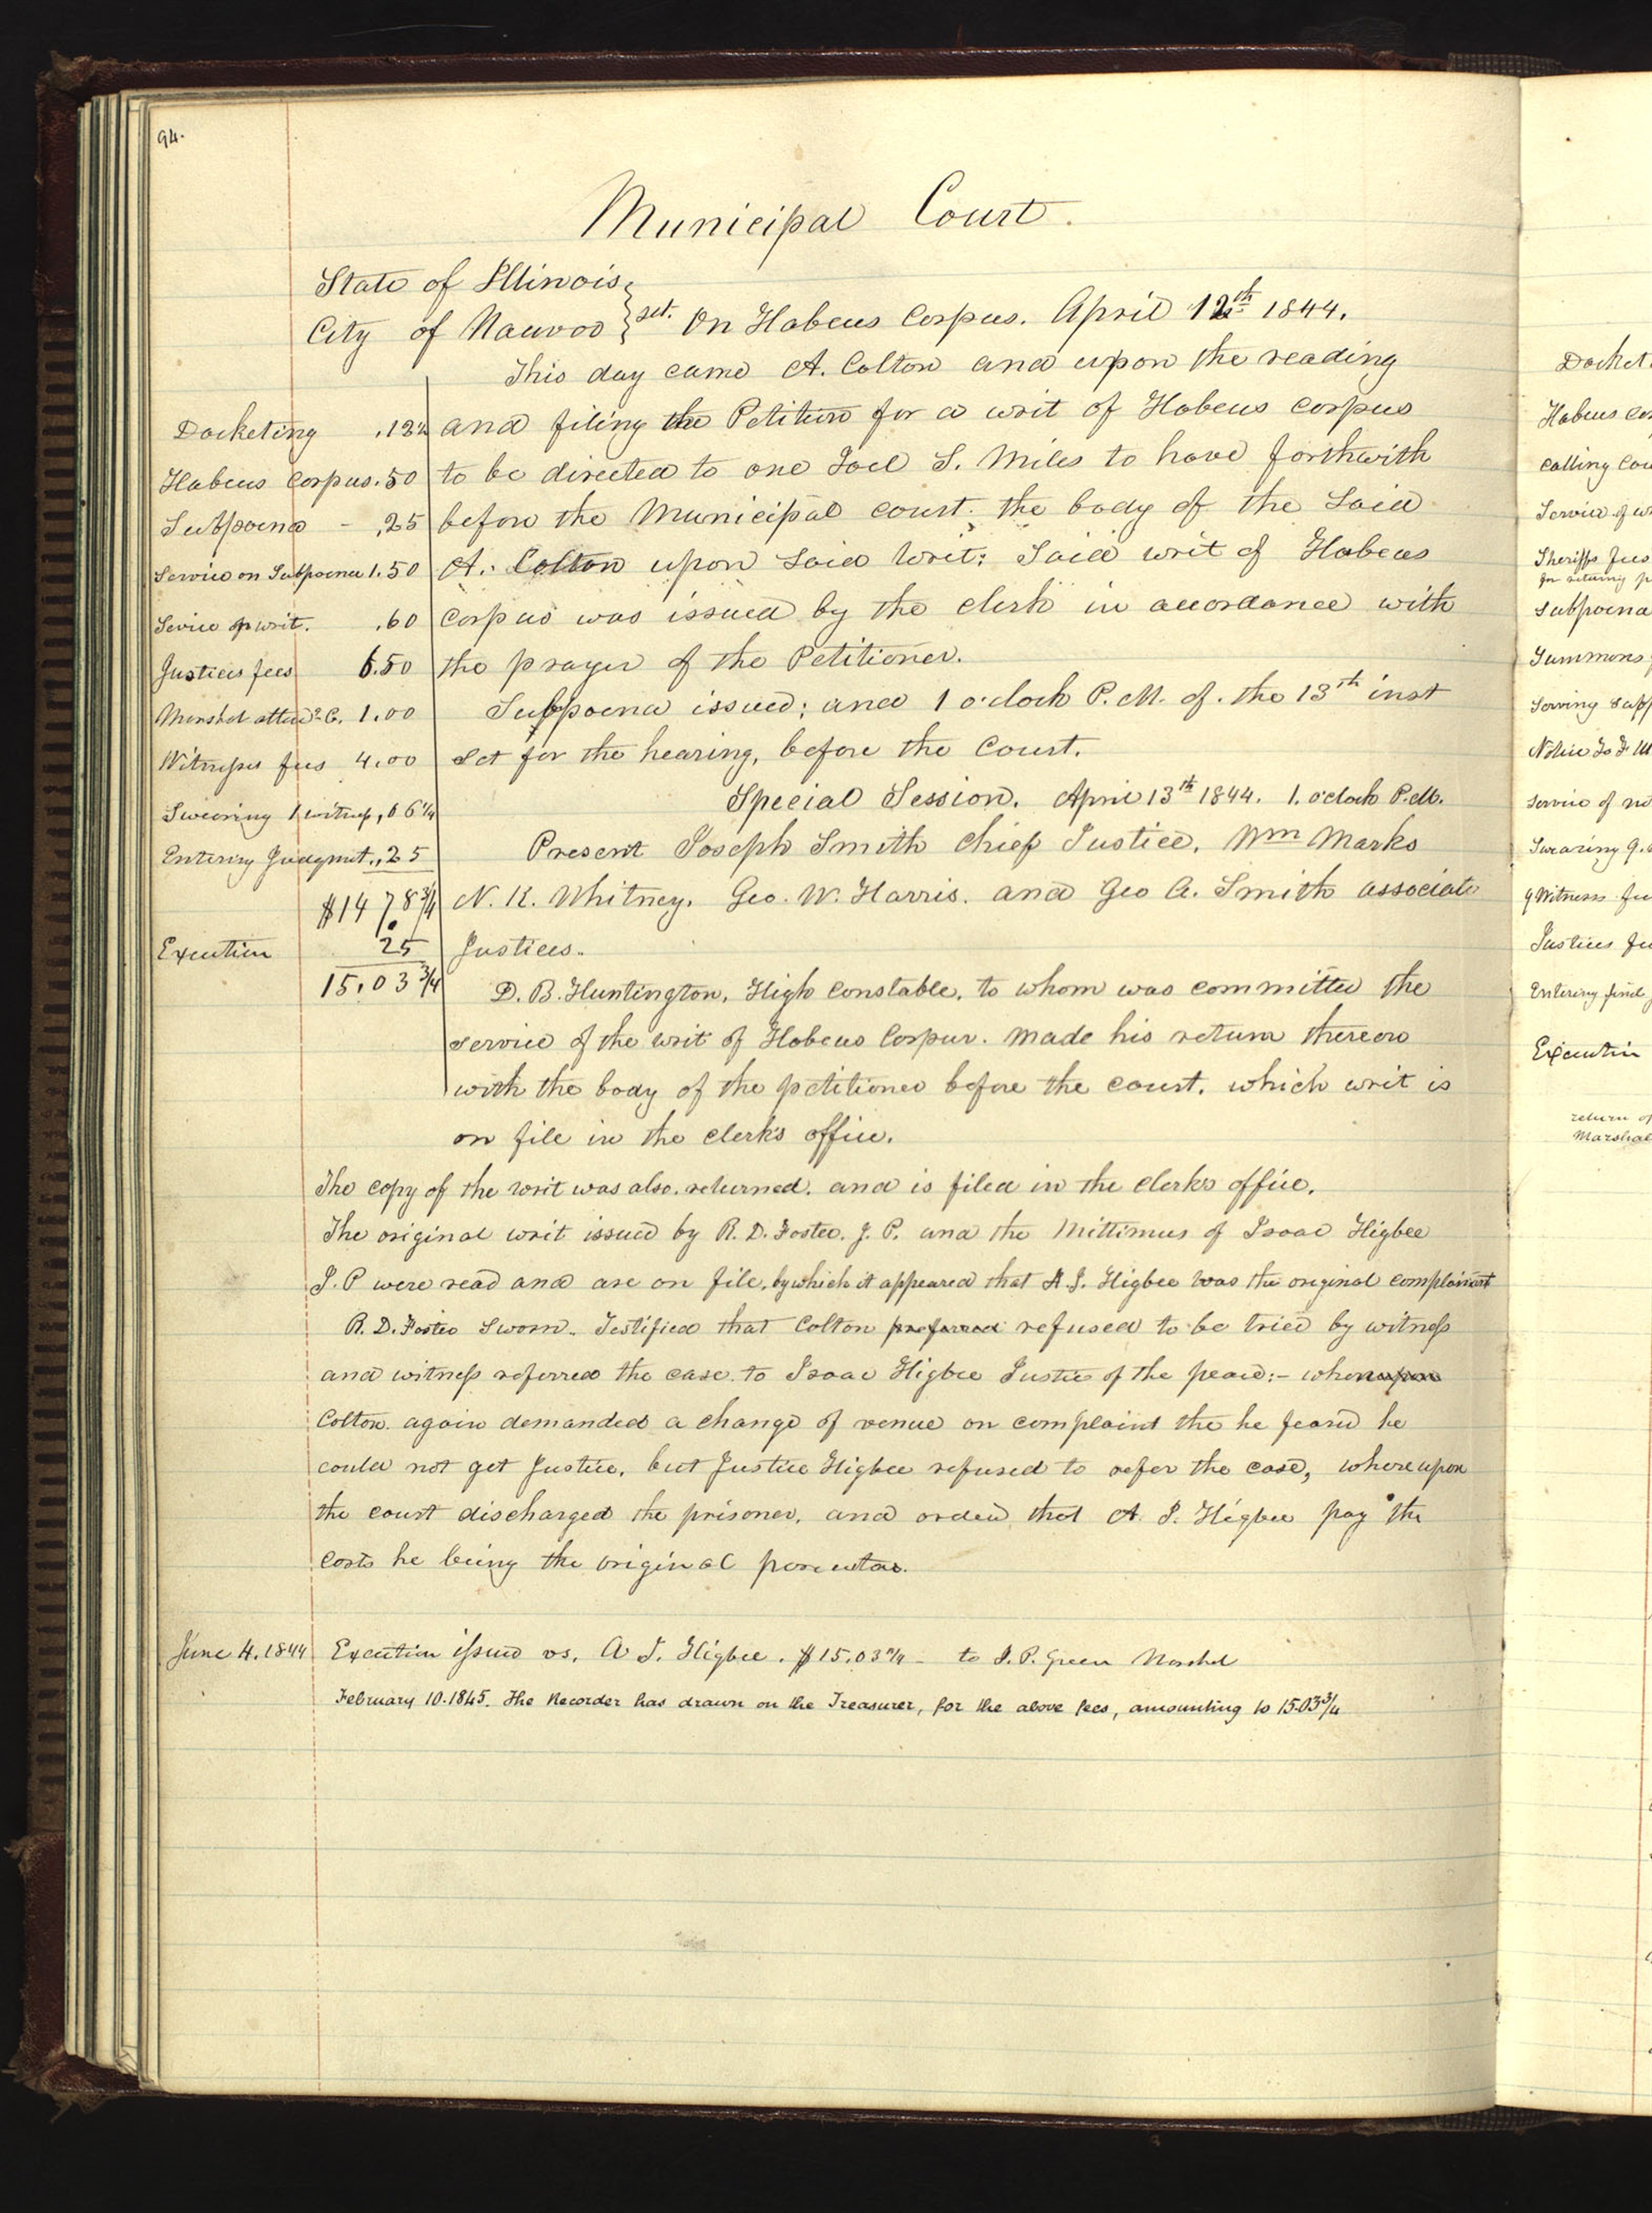 94.
Municipal Court.
State of Illinois }
City of Nauvoo } sct. On Habeus Corpus. April 12th 1844.
This day came A. Colton and upon the reading
Docketing ,12½ and filing the Petition for a writ of Habeus Corpus
Habeus Corpus .50 to be directed to one Joel S. Miles to have forthwith
Subpoena - ,25 before the Municipal court. the body of the said
Service on Subpoena 1.50 A. Colton upon said writ; Said writ of Habeus
Sevice of writ. .60 corpus was issued by the clerk in accordance with
Justices fees 6.50 the prayer of the Petitioner.
Marshal attedc. 1.00 Subpoena issued; and 1 o'clock P.M. of. the 13th inst
Witnesses fees 4.00 set for the hearing, before the Court.
Special Session. April 13th 1844. 1. o'clock P.M.
Swearing 1 witness, 06¼
Entering Judgmnt., 25 Present Joseph Smith Chief Justice, Wm Marks
$14.78¾ N. K. Whitney, Geo. W. Harris. and Geo A. Smith associate
Execution 25 Justices.
15.03¾ D. B. Huntington, High Constable, to whom was committed the
service of the writ of Habeus Corpus. made his return thereon
with the body of the petitioner before the court, which writ is
on file in the clerk's office.
The copy of the writ was also. returned. and is filed in the clerk's office.
The original writ issued by R. D. Foster. J. P. and the Mittimus of Isaac Higbee
J. P were read and are on file, by which it appeared that A. J. Higbee was the original complainant
R. D. Foster sworn. Testified that Colton preferred refused to be tried by witness
and witness referred the case to Isaac Higbee Justice of the peace:- whereupon
Colton. again demanded a change of venue on complaint the he feared he
could not get justice, but Justice Higbee refused to refer the case, whereupon
the court discharged the prisoner, and orderd that A. J. Higbee pay the
costs he being the original
June 4. 1844 Execution issued vs. A J. Higbee. $15.03¾ - to J. P. Green Marshal
February 10. 1845. The Recorder has drawn on the Treasurer, for the above fees, amounting to 15.03¾
Docket
Habeus Co
Calling Cou
Service of w
Sheriffs fees
for returning p
Subpoena
Summons
Serving
Notice to
Service of no
Swearing 9.
9 Witness fee
Justices fe
Entering final
Execution
return of
Marshal